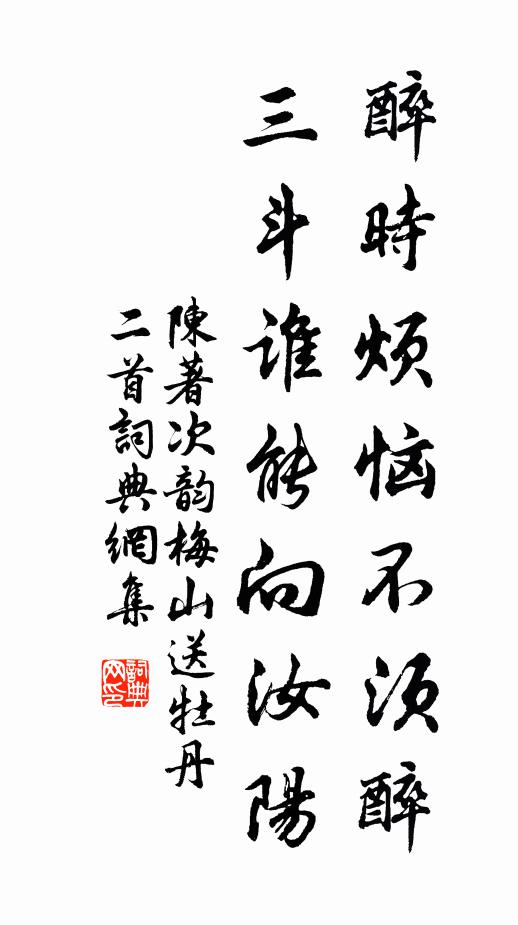 醉時煩恼不須醉
三斗誰能向汝陽
陳著次韵梅山送牡丹
二首詞典網集
詞典网印